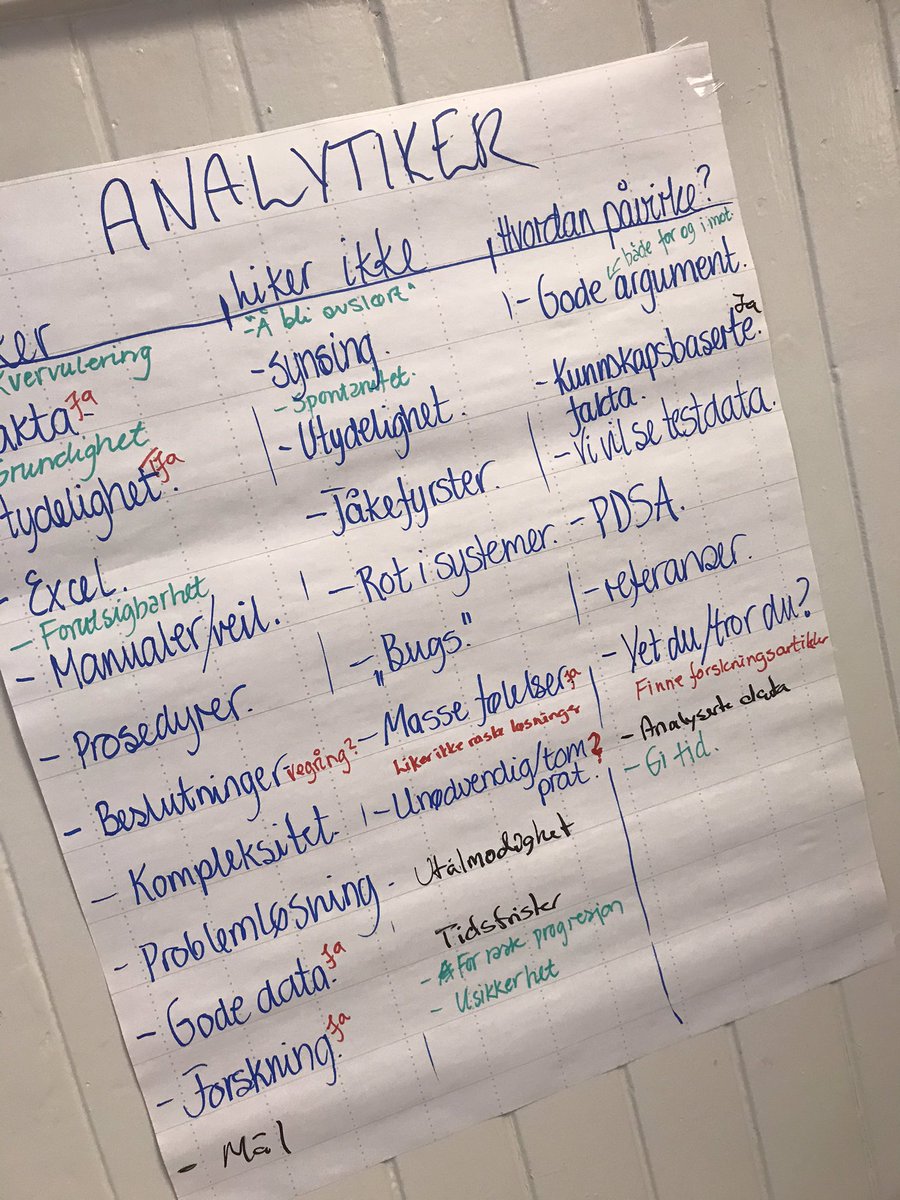 ANALYTIKER
ker
Kvervulering
akta Ja
Grundighet
tydelighet. Ja
- Excel.
- Forutsigbarhet
- Manualer/veil.
- Prosedyrer.
- Beslutninger vegring?
- Kompleksitet.
- Problemløsning
- Gode data. Ja
- Forskning. Ja
- Mål
Liker ikke
- "Å bli avslørt"
- Synsing.
- Spontanitet.
- Utydelighet.
- Tåkefyrster.
- Rot i systemer.
- "Bugs."
- Masse følelser Ja
Liker ikke raske løsninger
- Unødvendig/tom ?
prat.
- Utålmodighet
Tidsfrister
- For rask progresjon
- Usikkerhet
Hvordan påvirke?
både for og i mot.
- Gode argument.
Ja
- Kunnskapsbaserte.
fakta.
- Vi vil se testdata.
- PDSA.
- referanser.
- Vet du/tror du?
Finne forskningsartikler
- Analyserte data
- Gi tid.